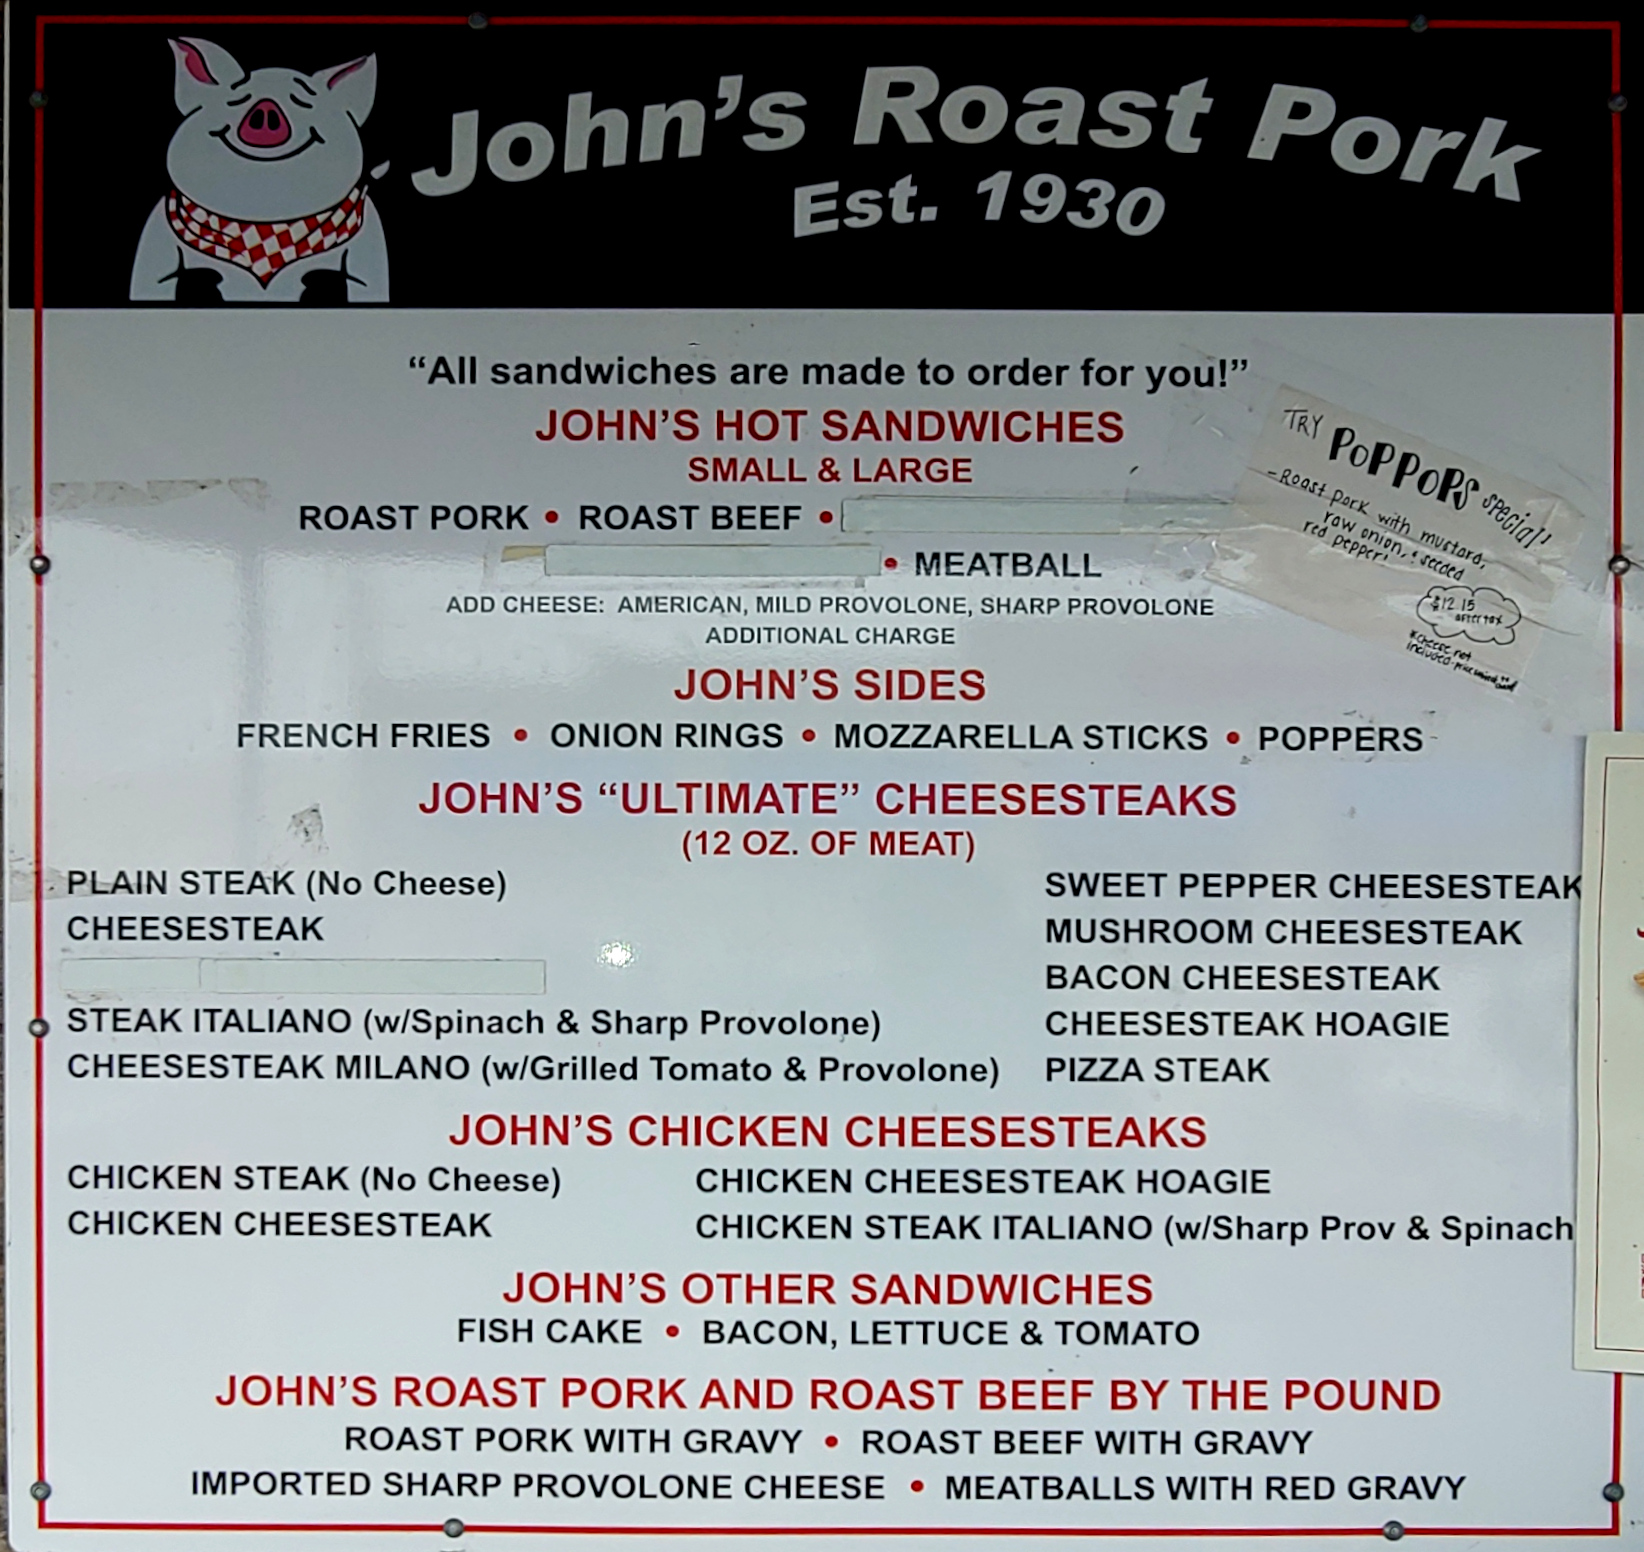 John's Roast Pork
Est. 1930
"All sandwiches are made to order for you!"
JOHN'S HOT SANDWICHES
SMALL & LARGE
ROAST PORK • ROAST BEEF •
• MEATBALL
ADD CHEESE: AMERICAN, MILD PROVOLONE, SHARP PROVOLONE
ADDITIONAL CHARGE
TRY PoPPoPS special!
-Roast pork with mustard,
raw onion, & seeded
red pepper!
$12.15
after tax
*cheese not
included
JOHN'S SIDES
FRENCH FRIES • ONION RINGS • MOZZARELLA STICKS • POPPERS
JOHN'S "ULTIMATE" CHEESESTEAKS
(12 OZ. OF MEAT)
PLAIN STEAK (No Cheese)
CHEESESTEAK
STEAK ITALIANO (w/Spinach & Sharp Provolone)
CHEESESTEAK MILANO (w/Grilled Tomato & Provolone)
SWEET PEPPER CHEESESTEAK
MUSHROOM CHEESESTEAK
BACON CHEESESTEAK
CHEESESTEAK HOAGIE
PIZZA STEAK
JOHN'S CHICKEN CHEESESTEAKS
CHICKEN STEAK (No Cheese)
CHICKEN CHEESESTEAK
CHICKEN CHEESESTEAK HOAGIE
CHICKEN STEAK ITALIANO (w/Sharp Prov & Spinach
JOHN'S OTHER SANDWICHES
FISH CAKE • BACON, LETTUCE & TOMATO
JOHN'S ROAST PORK AND ROAST BEEF BY THE POUND
ROAST PORK WITH GRAVY • ROAST BEEF WITH GRAVY
IMPORTED SHARP PROVOLONE CHEESE • MEATBALLS WITH RED GRAVY